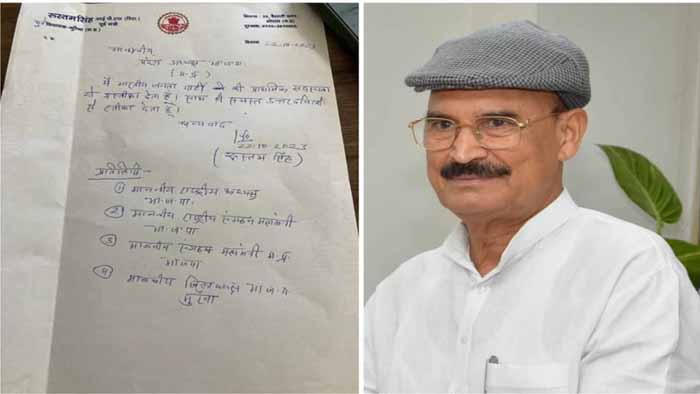 रुस्तमसिंह आई पी.एस (रिटा.)
पूर्व मंत्री
पूर्व विधायक-मुरैना (म.प्र.)
दिनांक 22.10.2023
माननीय
प्रदेश अध्यक्ष भाजपा
(म.प्र.)
मैं भारतीय जनता पार्टी की प्राथमिक सदस्यता
से इस्तीफा देता हूँ। साथ ही समस्त उत्तरदायित्वों
से इस्तीफा देता हूँ।
धन्यवाद
22.10.2023
(रुस्तम सिंह)
प्रतिलिपि
① माननीय राष्ट्रीय अध्यक्ष
भा.ज.पा.
② माननीय राष्ट्रीय संगठन महामंत्री
भा.ज.पा
③ माननीय संगठन महामंत्री म.प्र.
भाजपा
④ माननीय जिलाध्यक्ष भा.ज.पा
मुरैना